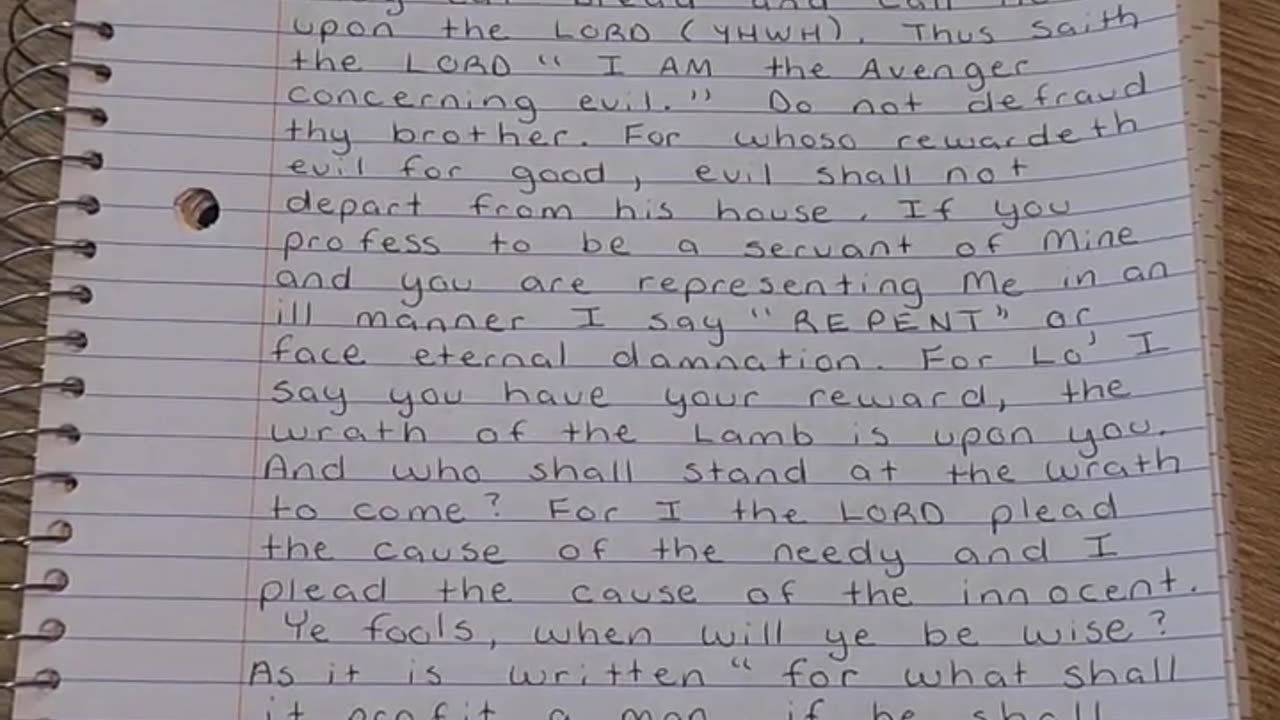 bread and call not
upon the LORD (YHWH). Thus saith
the LORD “ I AM the Avenger
concerning evil.” Do not defraud
thy brother. For whoso rewardeth
evil for good, evil shall not
depart from his house. If you
profess to be a servant of Mine
and you are representing Me in an
ill manner I say “REPENT” or
face eternal damnation. For Lo' I
say you have your reward, the
wrath of the Lamb is upon you.
And who shall stand at the wrath
to come? For I the LORD plead
the cause of the needy and I
plead the cause of the innocent.
Ye fools, when will ye be wise?
As it is written “ for what shall
it profit a man if he shall